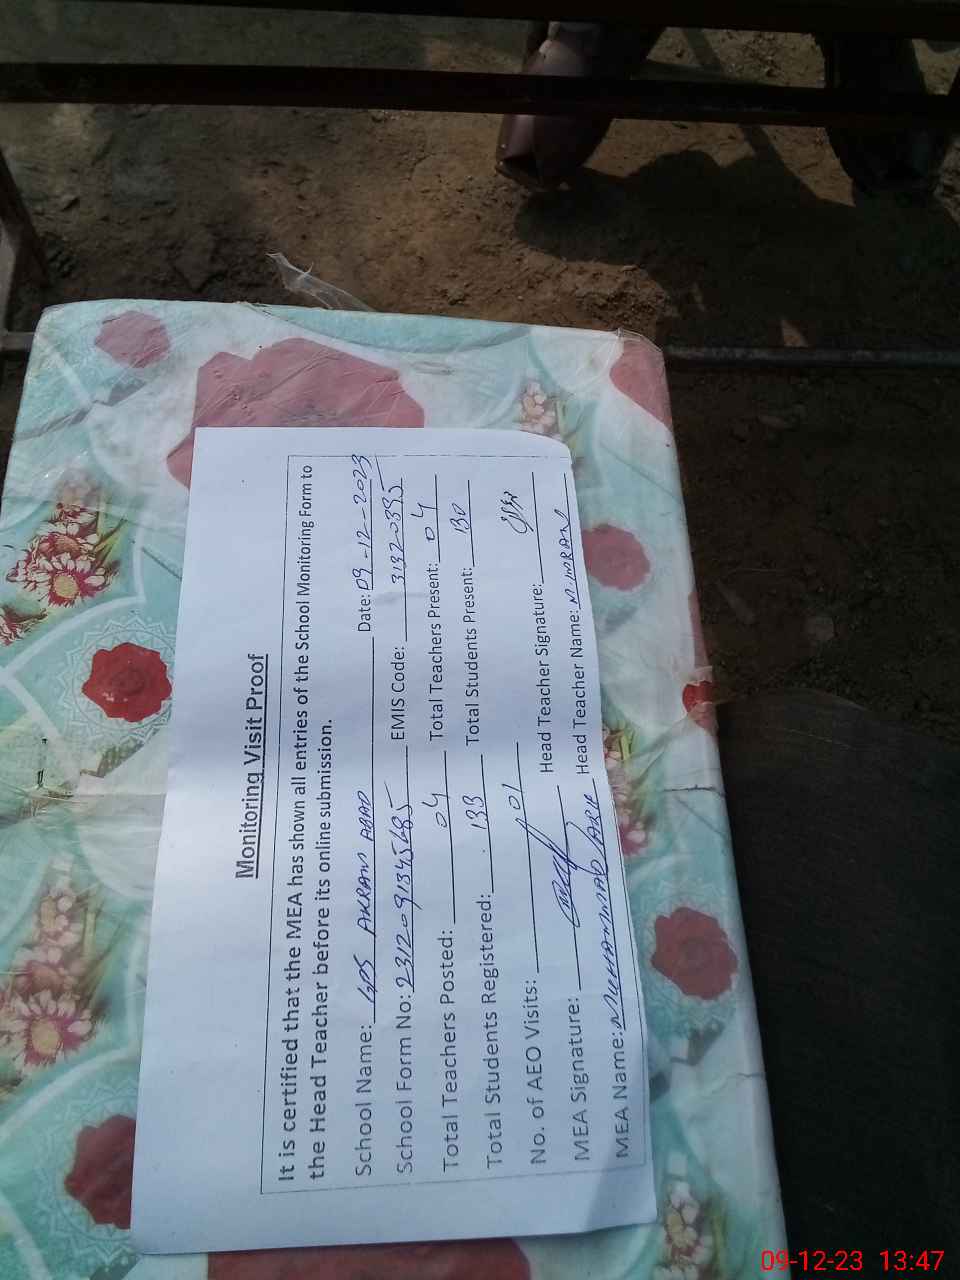 Monitoring Visit Proof
It is certified that the MEA has shown all entries of the School Monitoring Form to
the Head Teacher before its online submission.
School Name: GPS AKRAM ABAD Date: 09-12-2023
School Form No: 2312091345685 EMIS Code: 31320395
Total Teachers Posted: 04 Total Teachers Present: 04
Total Students Registered: 133 Total Students Present: 130
No. of AEO Visits: 01
MEA Signature: Head Teacher Signature:
MEA Name: MUHAMMAD Head Teacher Name: M. IMRAN
09-12-23 13:47